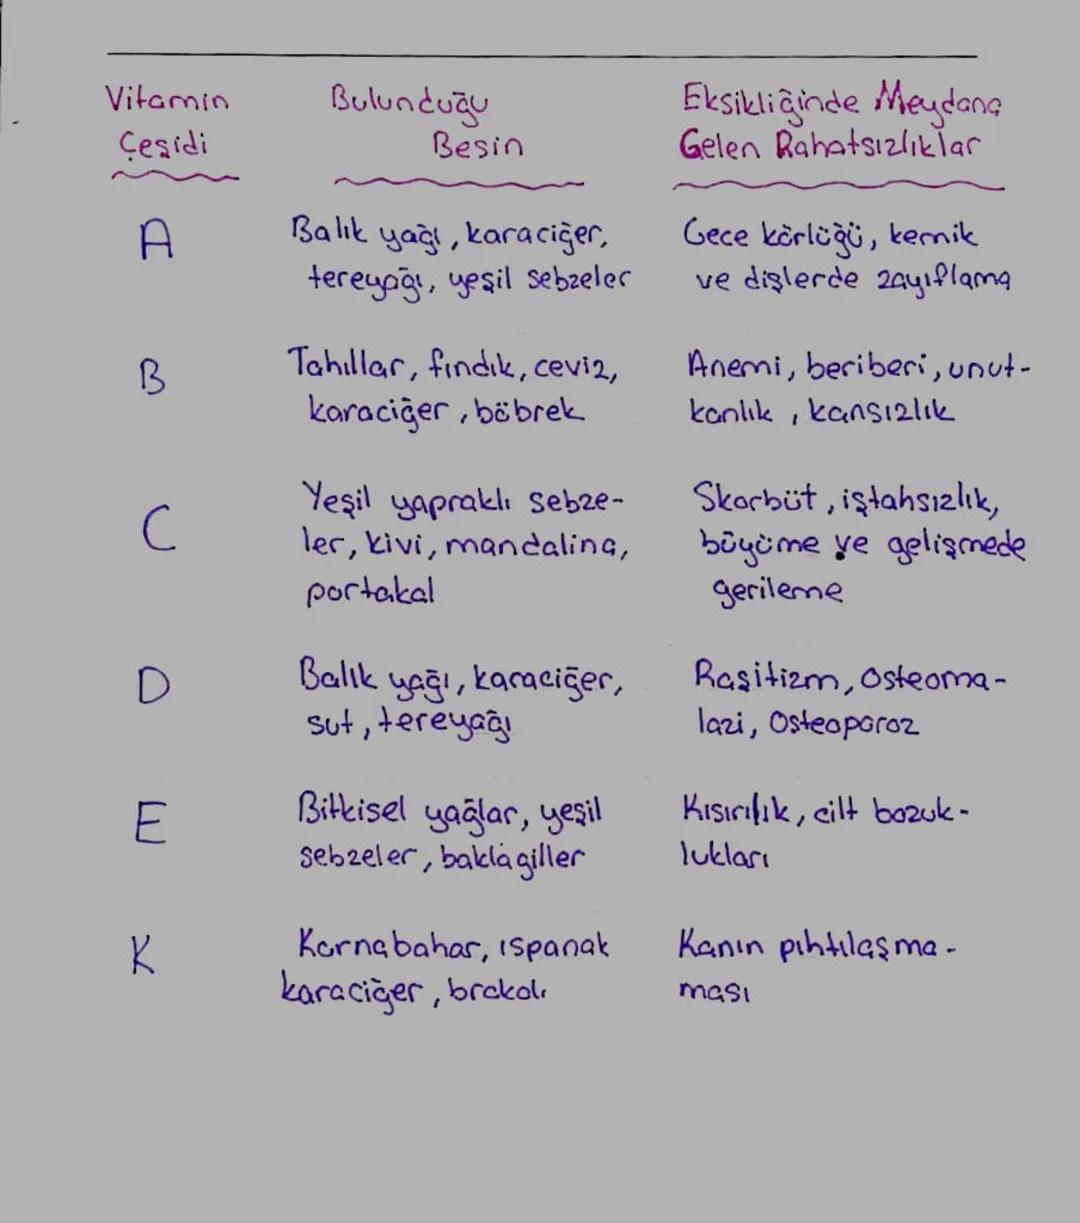 Vitamin Bulunduğu Eksikliğinde Meydana
Çeşidi Besin Gelen Rahatsızlıklar
A Balık yağı, karaciğer, Gece körlüğü, kemik
tereyağı, yeşil sebzeler ve dişlerde zayıflama
B Tahıllar, fındık, ceviz, Anemi, beriberi, unut-
karaciğer, böbrek kanlık, kansızlık
Yeşil yapraklı sebze- Skorbüt, iştahsızlık,
C ler, kivi, mandalina, büyüme ve gelişmede
portakal gerileme
D Balık yağı, karaciğer, Raşitizm, Osteoma-
sut, tereyağı lazi, Osteoporoz
E Bitkisel yağlar, yeşil Kısırılık, cilt bozuk-
sebzeler, baklagiller lukları
K Karnabahar, ıspanak Kanın pıhtılaşma-
karaciğer, brokoli ması